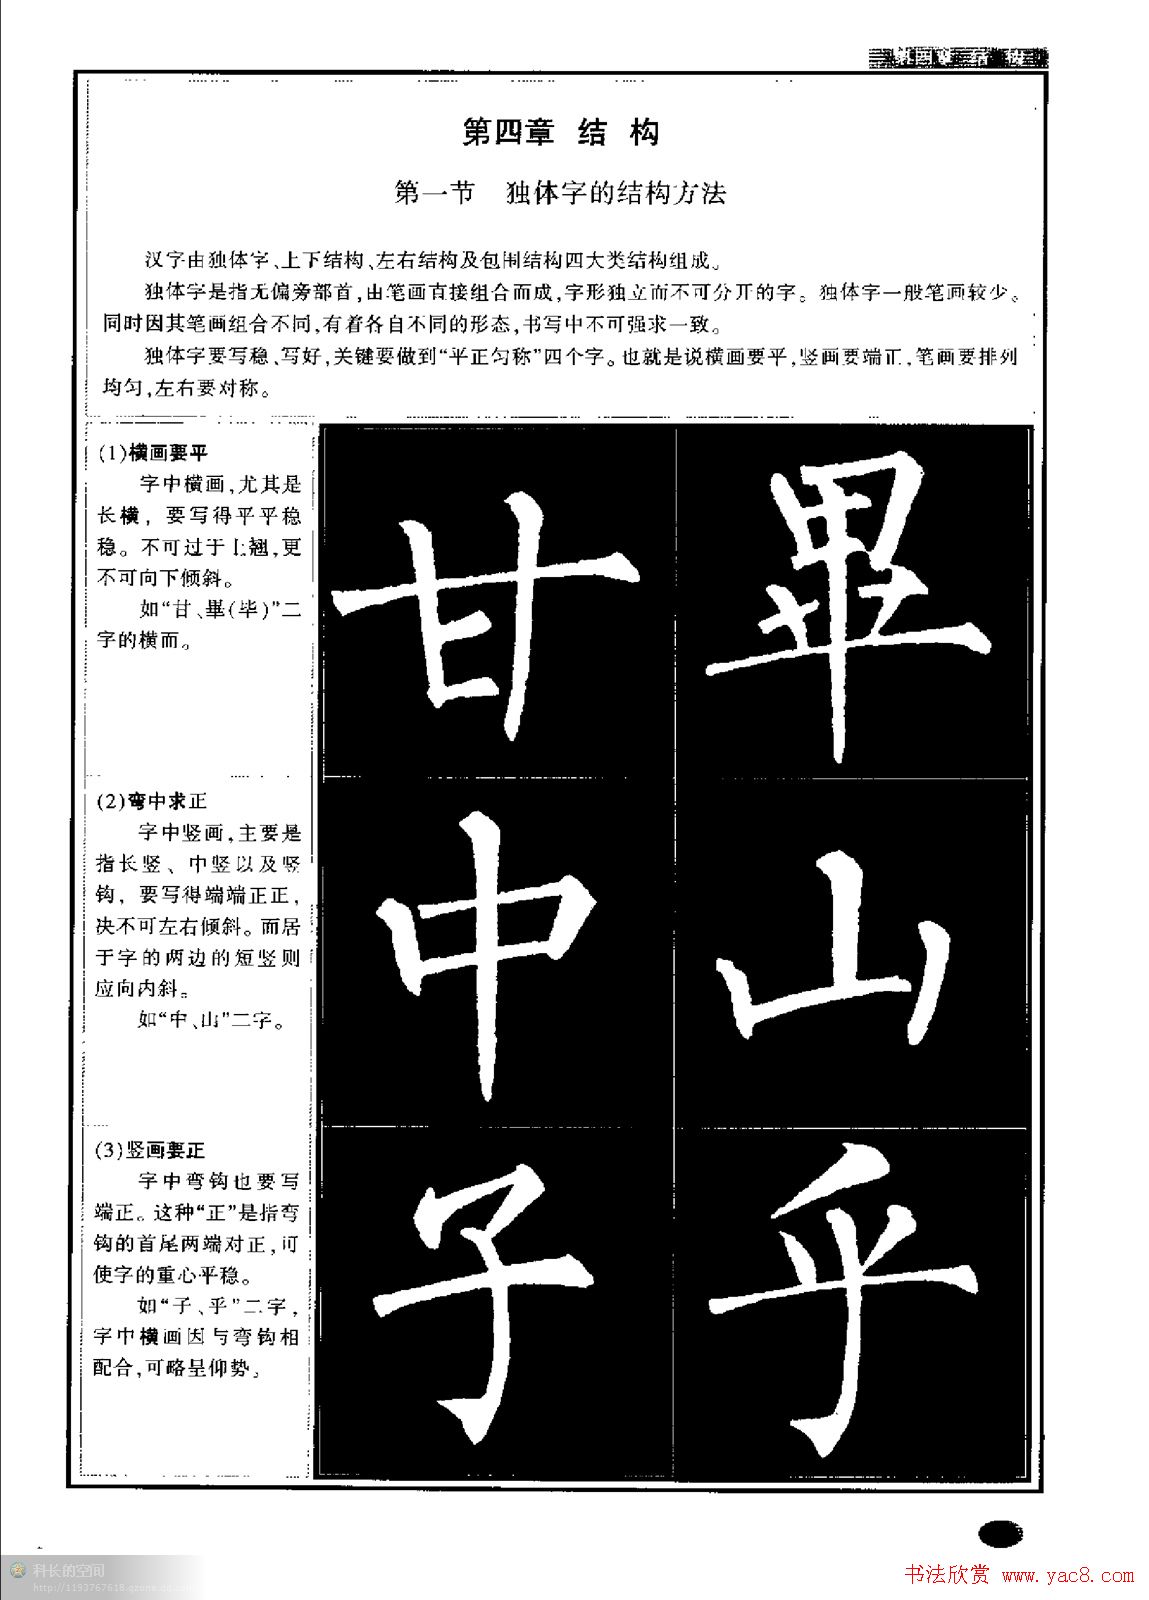 第四章 结 构
第四章 结 构
第一节 独体字的结构方法
汉字由独体字、上下结构、左右结构及包围结构四大类结构组成。
独体字是指无偏旁部首,由笔画直接组合而成,字形独立而不可分开的字。独体字一般笔画较少。
同时因其笔画组合不同,有着各自不同的形态,书写中不可强求一致。
独体字要写稳、写好,关键要做到“平正匀称”四个字。也就是说横画要平,竖画要端正,笔画要排列
均匀,左右要对称。
(1)横画要平
字中横画,尤其是
长横，要写得平平稳
稳。不可过于上翘,更
不可向下倾斜。
如“甘、畢(毕)”二
字的横画。
甘 畢
(2)弯中求正
字中竖画,主要是
指长竖、中竖以及竖
钩，要写得端端正正,
决不可左右倾斜。而居
于字的两边的短竖则
应向内斜。
如“中、山”二字。
中 山
(3)竖画要正
字中弯钩也要写
端正。这种“正”是指弯
钩的首尾两端对正,可
使字的重心平稳。
如“子、乎”二字,
字中横画因与弯钩相
配合,可略呈仰势。
子 乎
科长的空间
http://1193767618.qzone.qq.com
书法欣赏 www.yac8.com